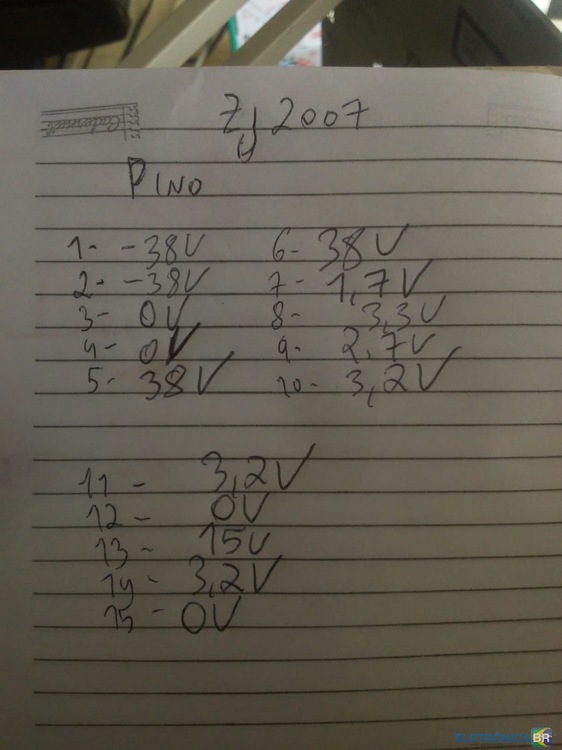 Zy 2007
PINO
1- -38V
2- -38V
3- 0V
4- 0V
5- 38V
6- 38V
7- 1,7V
8- 3,3V
9- 2,7V
10- 3,2V
11- 3,2V
12- 0V
13- 15V
14- 3,2V
15- 0V
BR